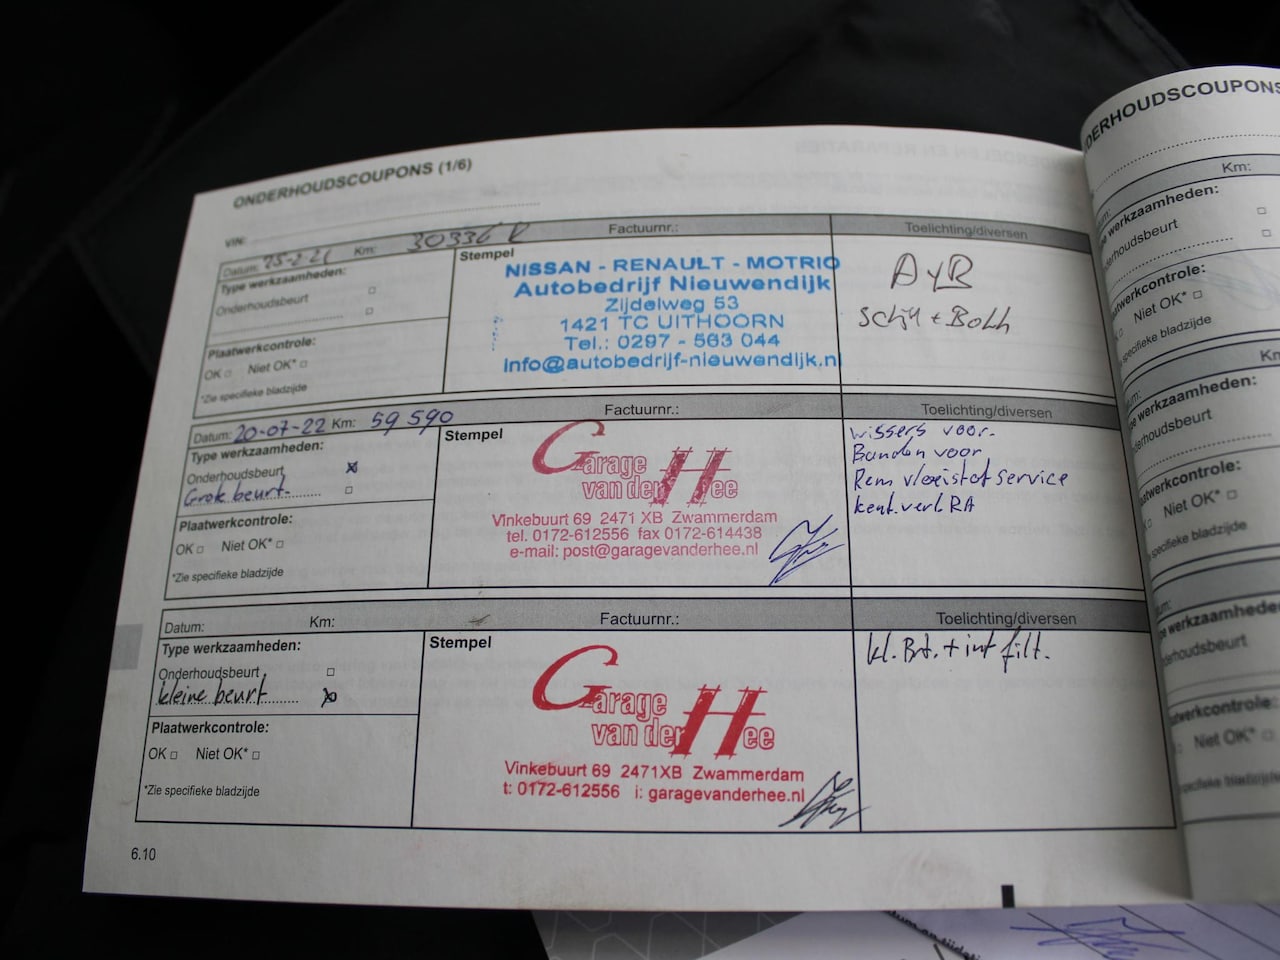 ONDERHOUDSCOUPONS (1/6)
VIN:
Datum: Km: Factuurnr.: Toelichting/diversen
Type werkzaamheden:
Onderhoudsbeurt
Plaatwerkcontrole:
OK Niet OK*
*Zie specifieke bladzijde
Stempel
NISSAN - RENAULT - MOTRIO
Autobedrijf Nieuwendijk
Zijdelweg 53
1421 TC UITHOORN
Tel.: 0297 - 563 044
info@autobedrijf-nieuwendijk.nl
Datum: 20-07-22 Km: 59 590 Factuurnr.: Toelichting/diversen
Type werkzaamheden:
Onderhoudsbeurt
Grote beurt
Plaatwerkcontrole:
OK Niet OK*
*Zie specifieke bladzijde
Stempel
Garage
van der Hee
Vinkebuurt 69 2471 XB Zwammerdam
tel. 0172-612556 fax 0172-614438
e-mail: post@garagevanderhee.nl
wissers voor.
Banden voor
Rem vloeistof service
kent.verl. RA
Datum: Km: Factuurnr.: Toelichting/diversen
Type werkzaamheden:
Onderhoudsbeurt
kleine beurt
Plaatwerkcontrole:
OK Niet OK*
*Zie specifieke bladzijde
Stempel
Garage
van der Hee
Vinkebuurt 69 2471XB Zwammerdam
t: 0172-612556 i: garagevanderhee.nl
kl. Brt. + int filt.
6.10
Km:
Niet OK*
Niet OK*
Niet OK*